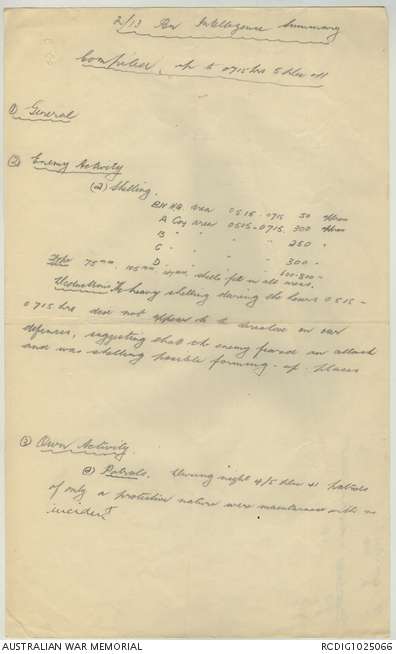 2/13 Bn Intelligence Summary
Compiled, up to 0715 hrs 5 Nov 41
① General
② Enemy Activity
(a) Shelling.
BN HQ area 0515-0715 50
A Coy area 0515-0715. 300
B " " " 250 "
C " " "
D " " " 300 "
Type 75mm, 105mm, shells fell in all areas.
Deductions The heavy shelling during the hours 0515-
0715 hrs does not appear to be on our
defences, suggesting that the enemy feared an attack
and was shelling possible forming-up places
③ Own Activity.
(a) Patrols. During night 4/5 Nov 41 patrols
of only a protective nature were maintained with no
incident
AUSTRALIAN WAR MEMORIAL
RCDIG1025066